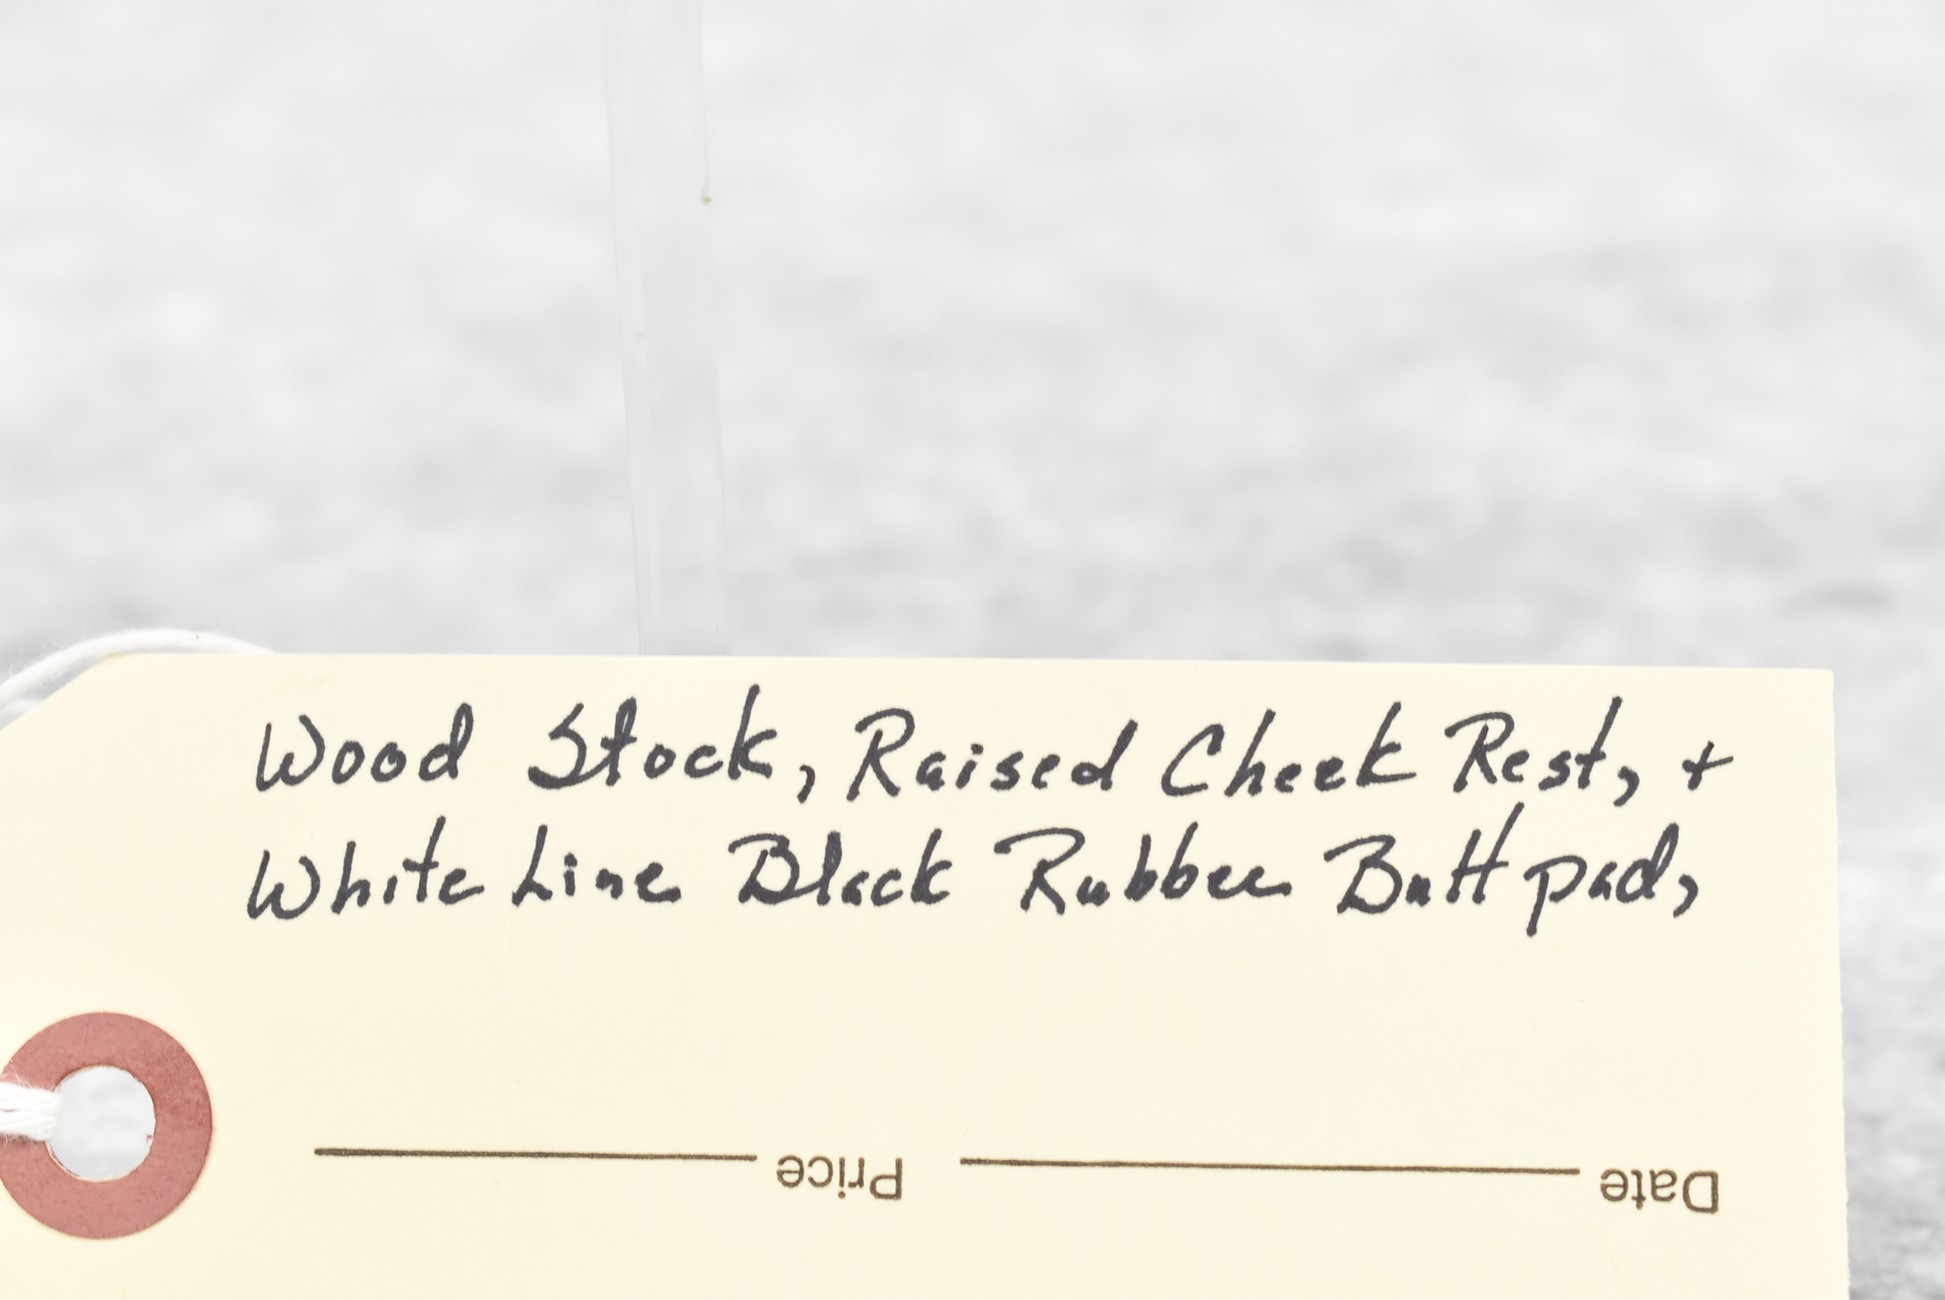 Wood Stock, Raised Cheek Rest, +
White Line Black Rubber Butt pad,
Price
Date